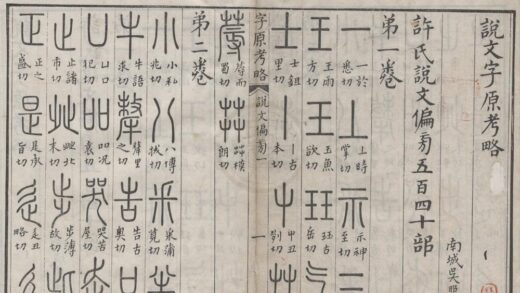 說文字原考略
南城吳
許氏說文偏旁五百四十部
第一卷
一 一於悉切 丄 上時掌切 示 示神至切
王 王雨方切 王 玉魚欲切 玨 玨古岳切
士 士鉏里切 丨 丨古本切 屮 屮丑列切 艸
字原考略 說文偏旁一 一
蓐 蓐而蜀切 茻 茻模朗切
第二卷
小 小私兆切 八 八博拔切 釆 釆蒲莧切 半
牛 牛語求切 犛 犛里之切 告 告古奧切 口
凵 凵口犯切 吅 吅况袁切 哭 哭苦屋切 走
止 止諸市切 癶 癶北末切 步 步薄故切
正 正之盛切 是 是承旨切 辵 辵丑略切